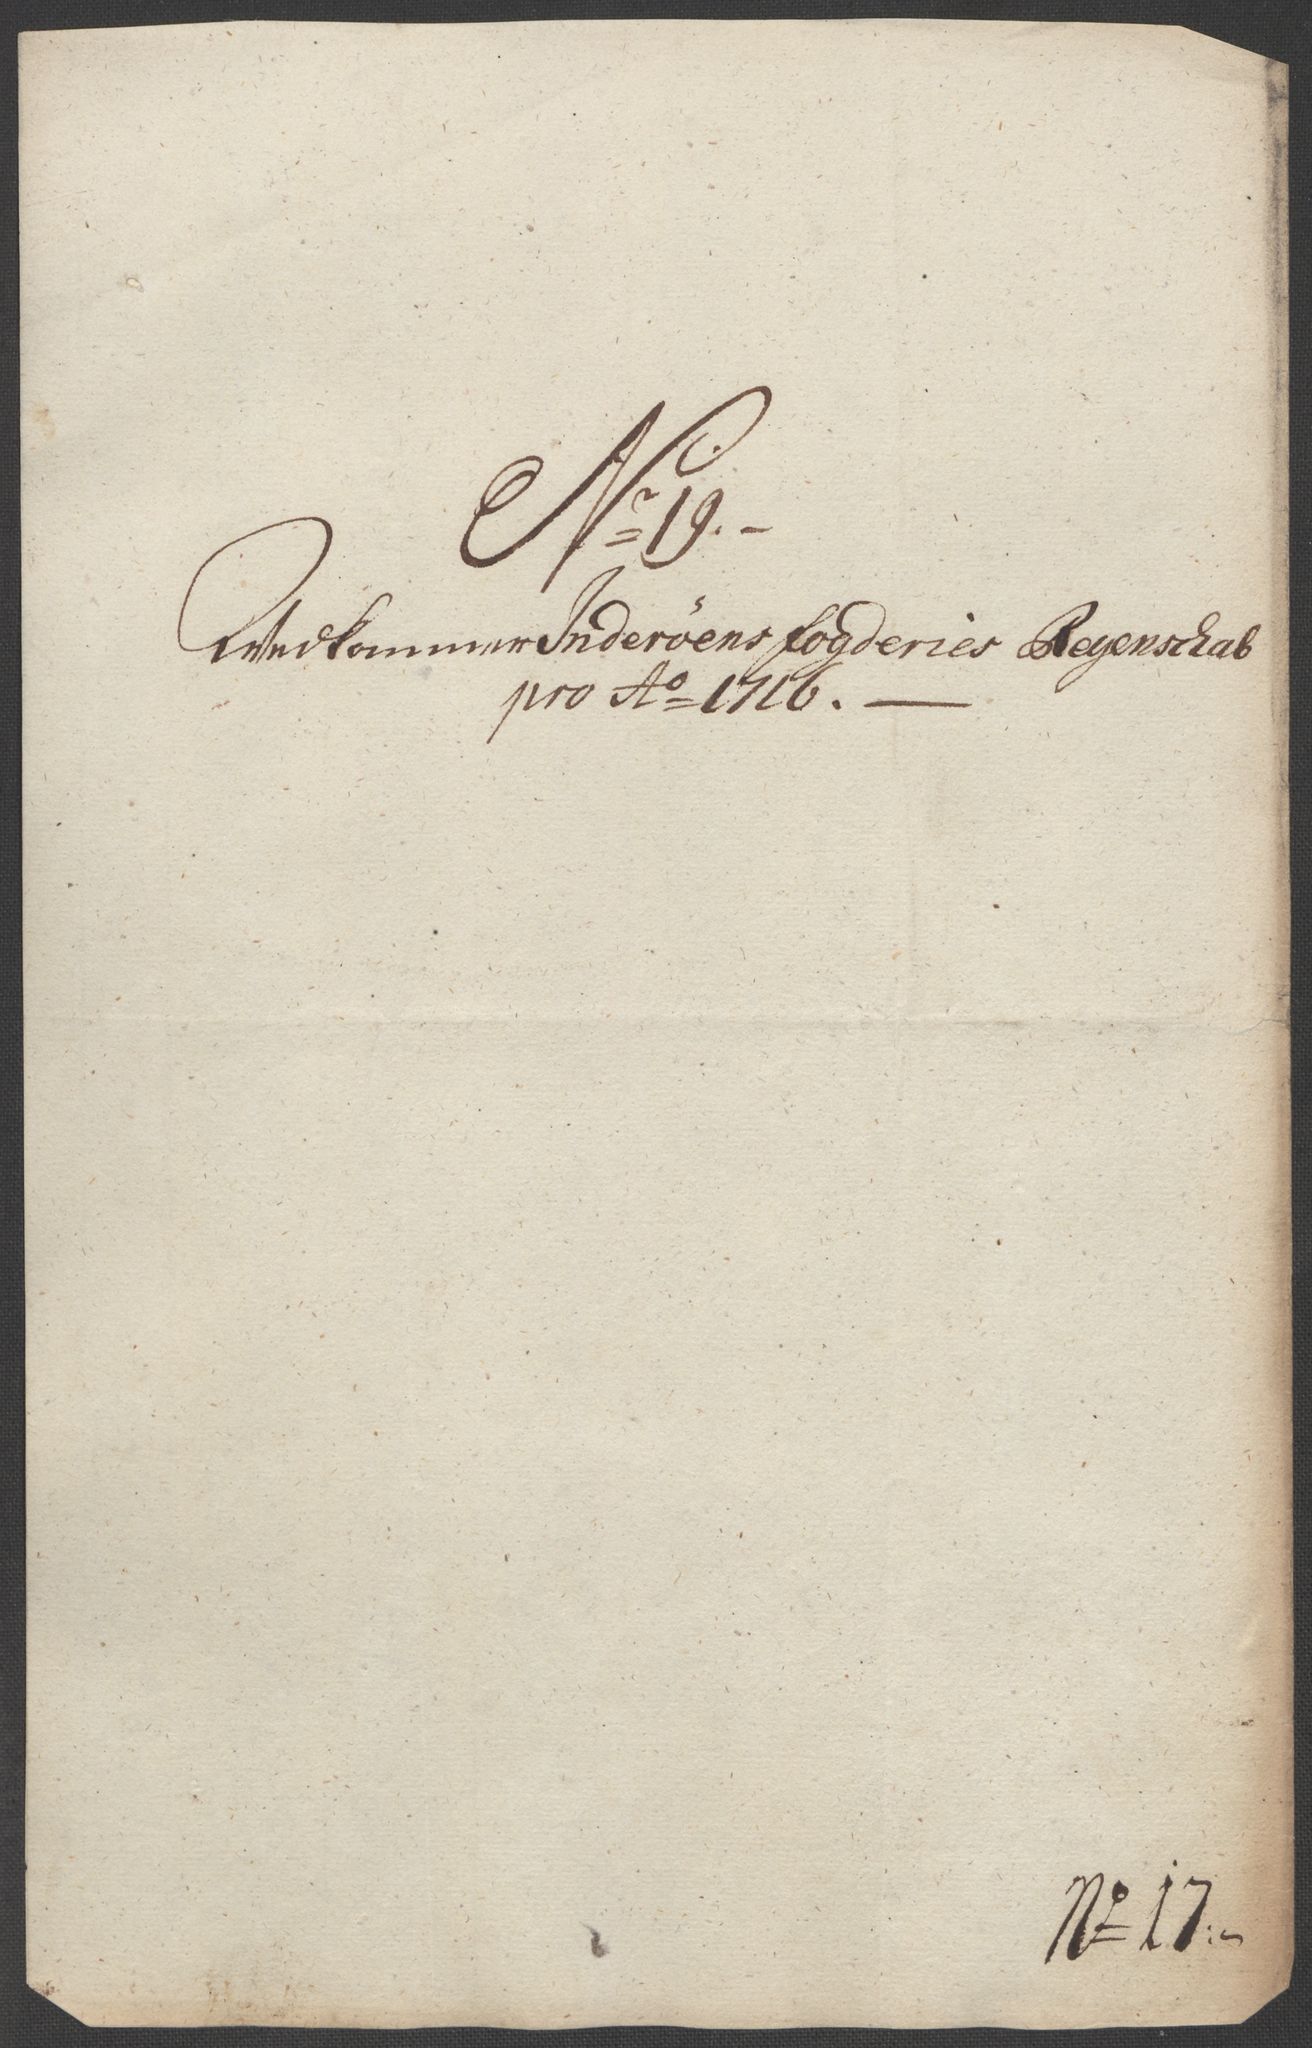 Nr 19. -
Vedkommer Inderöens fogderies Regenschab
pro Ao 1716. —
No 17.